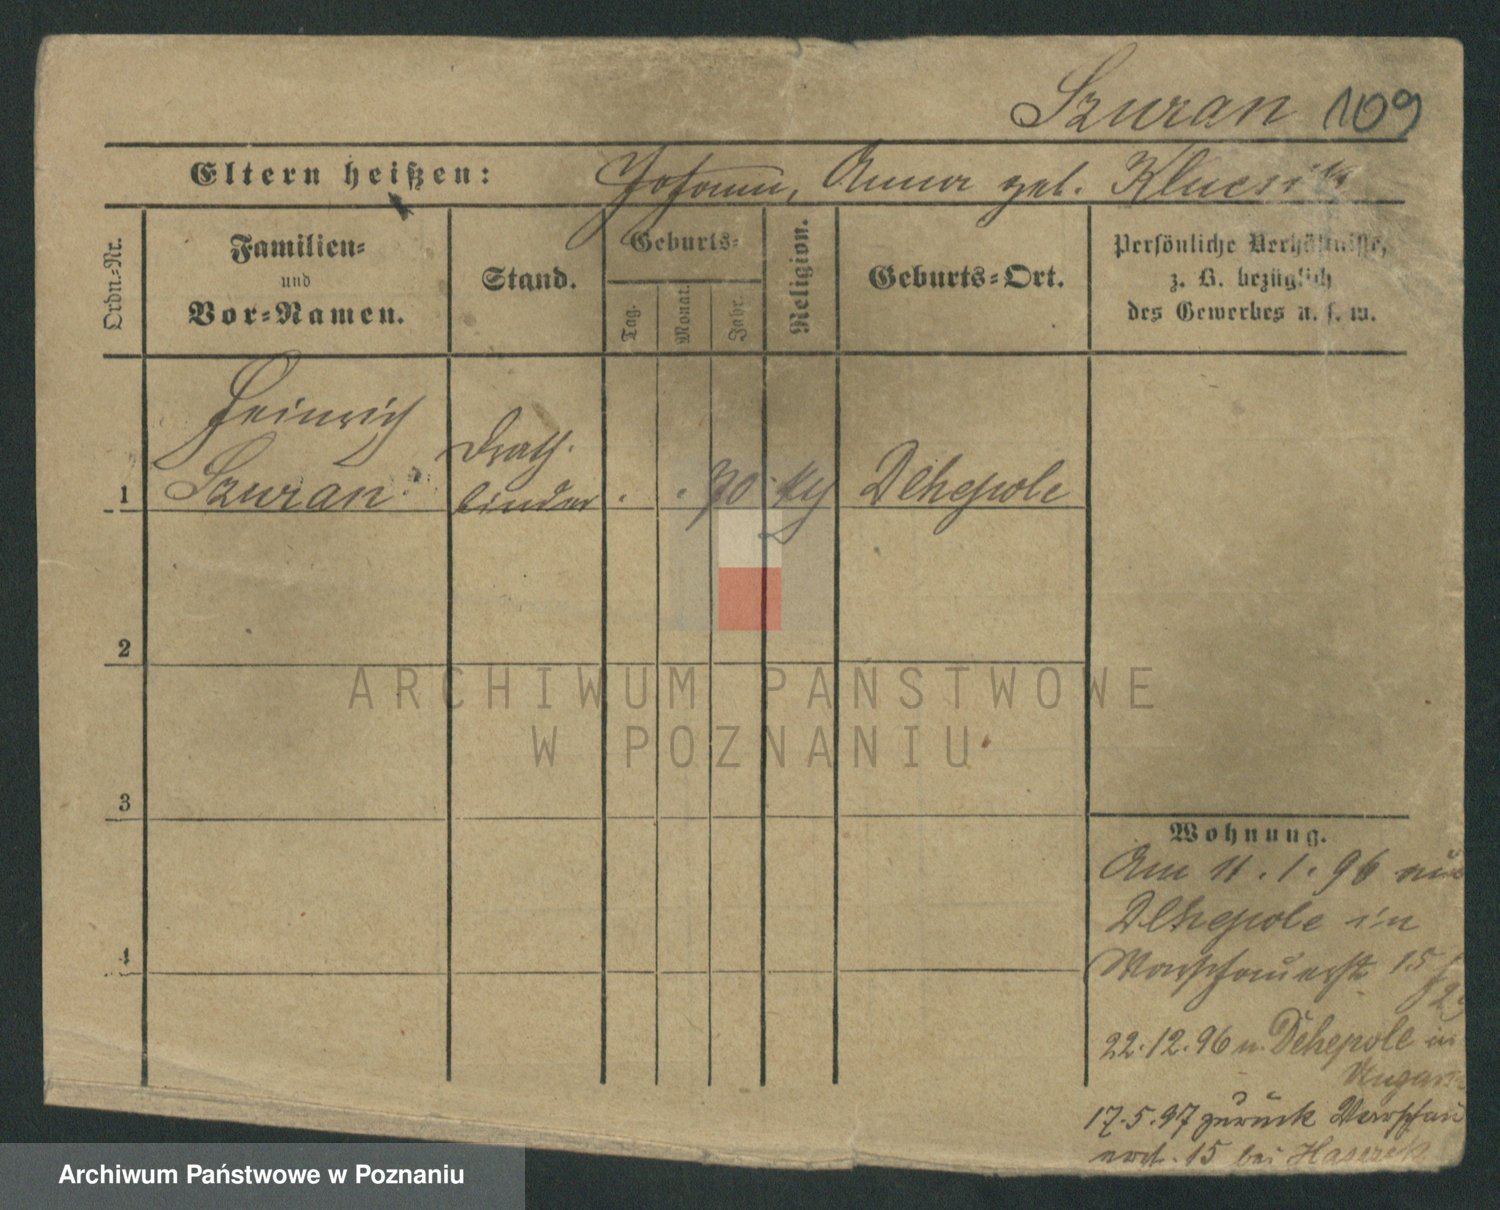 Szuran 109
Eltern heißen: Johann, Anna geb.
Ordn.-Nr.
Familien-
und
Vor-Namen.
Stand.
Geburts-
Tag.
Monat.
Jahr.
Religion.
Geburts-Ort.
Persönliche Verhältnisse,
z. B. bezüglich
des Gewerbes u. s. w.
Heinrich
Szuran
Drath-
binder
1
70
Dlhepole
2
3
4
Wohnung.
Am 11.1.96 aus
Dlhepole in
Warschauerstr 15
22.12.96 n. Dlhepole in
Ungarn
17.5.97 zurück Warschau
erstr. 15 bei
ARCHIWUM PAŃSTWOWE
W POZNANIU
Archiwum Państwowe w Poznaniu